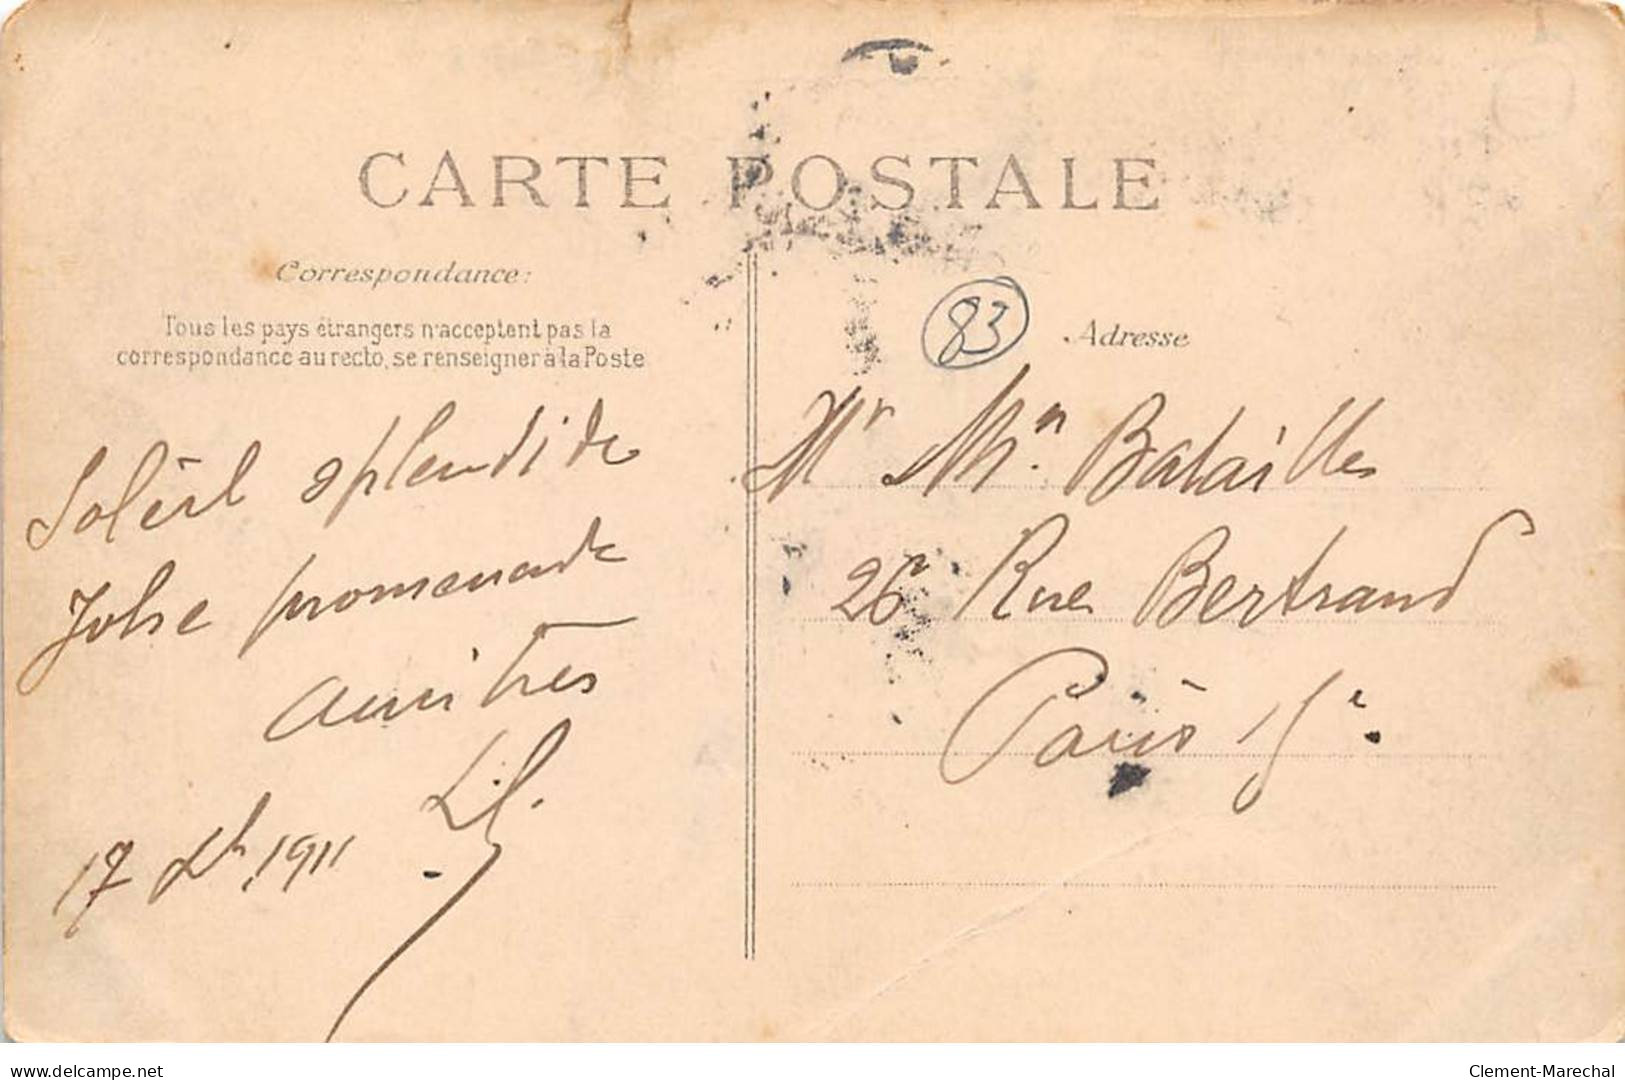 CARTE POSTALE
Correspondance:
Tous les pays étrangers n'acceptent pas la
correspondance au recto, se renseigner à la Poste
Soleil splendide
Jolie promenade
amitiés
17 1911
83
Adresse
Mr Batailles
26 Rue Bertrand
Paris
delcampe.net
Clement-Marechal